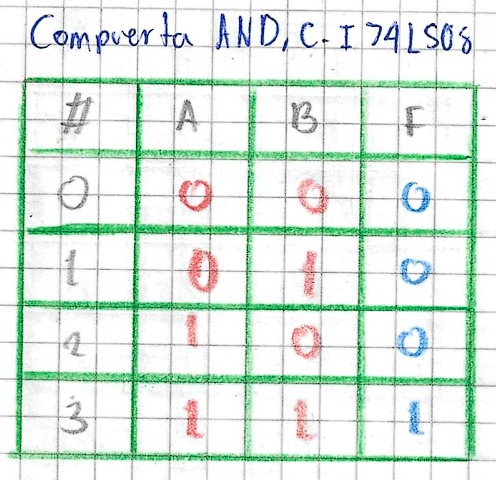 Compuerta AND, C.I 74LS08
# A B F
0 0 0 0
1 0 1 0
2 1 0 0
3 1 1 1